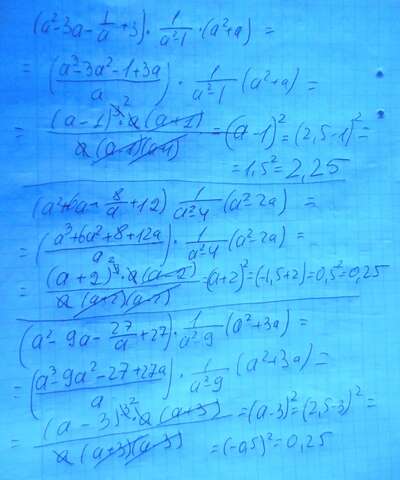 (a²-3a-1/a+3)·1/(a²-1)·(a²+a)=
=((a³-3a²-1+3a)/a)·1/(a²-1)(a²+a)=
=((a-1)³ ²·a(a+1))/(a(a-1)(a+1))=(a-1)²=(2,5-1)²=
=1,5²=2,25
(a²+6a+8/a+12)1/(a²-4)(a²-2a)=
=((a³+6a²+8+12a)/a)·1/(a²-4)(a²-2a)=
=((a+2)³ ²·a(a-2))/(a(a+2)(a-2))=(a+2)²=(-1,5+2)=0,5²=0,25
(a²-9a-27/a+27)·1/(a²-9)(a²+3a)=
=((a³-9a²-27+27a)/a)·1/(a²-9)(a²+3a)=
=((a-3)³ ²·a(a+3))/(a(a+3)(a-3))=(a-3)²=(2,5-3)²=
=(-0,5)²=0,25